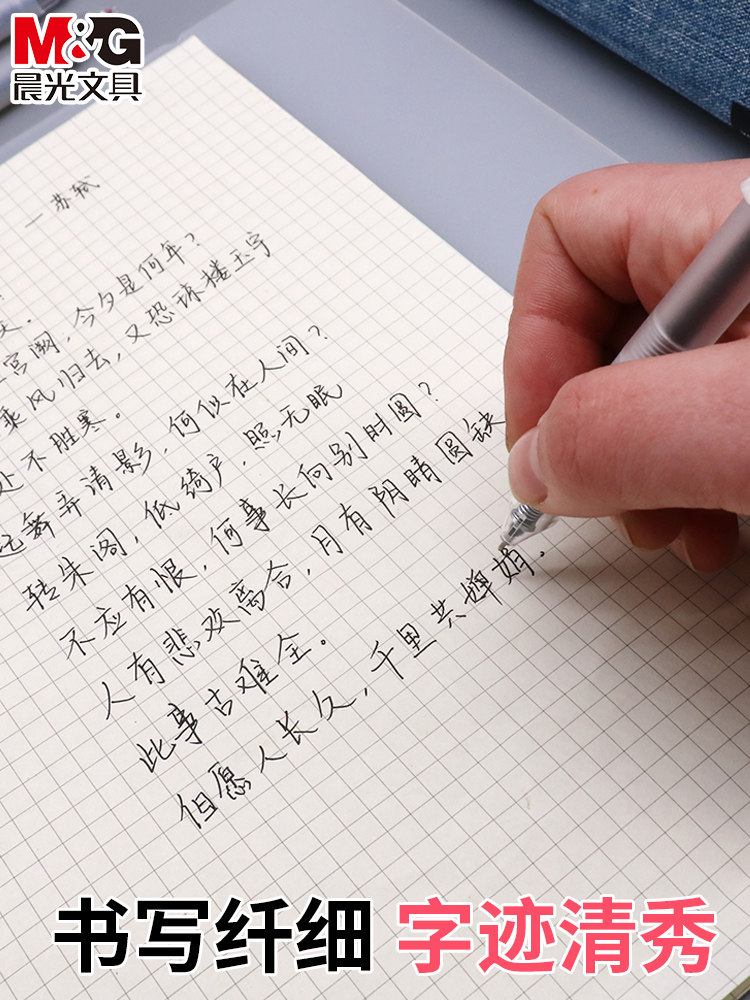 M&G
晨光文具
—苏轼
?
天。
宫阙,今夕是何年?
乘风归去,又恐琼楼玉宇
处不胜寒。
起舞弄清影,何似在人间?
转朱阁,低绮户,照无眠
不应有恨,何事长向别时圆?
人有悲欢离合,月有阴晴圆缺
此事古难全。
但愿人长久,千里共婵娟.
书写纤细 字迹清秀